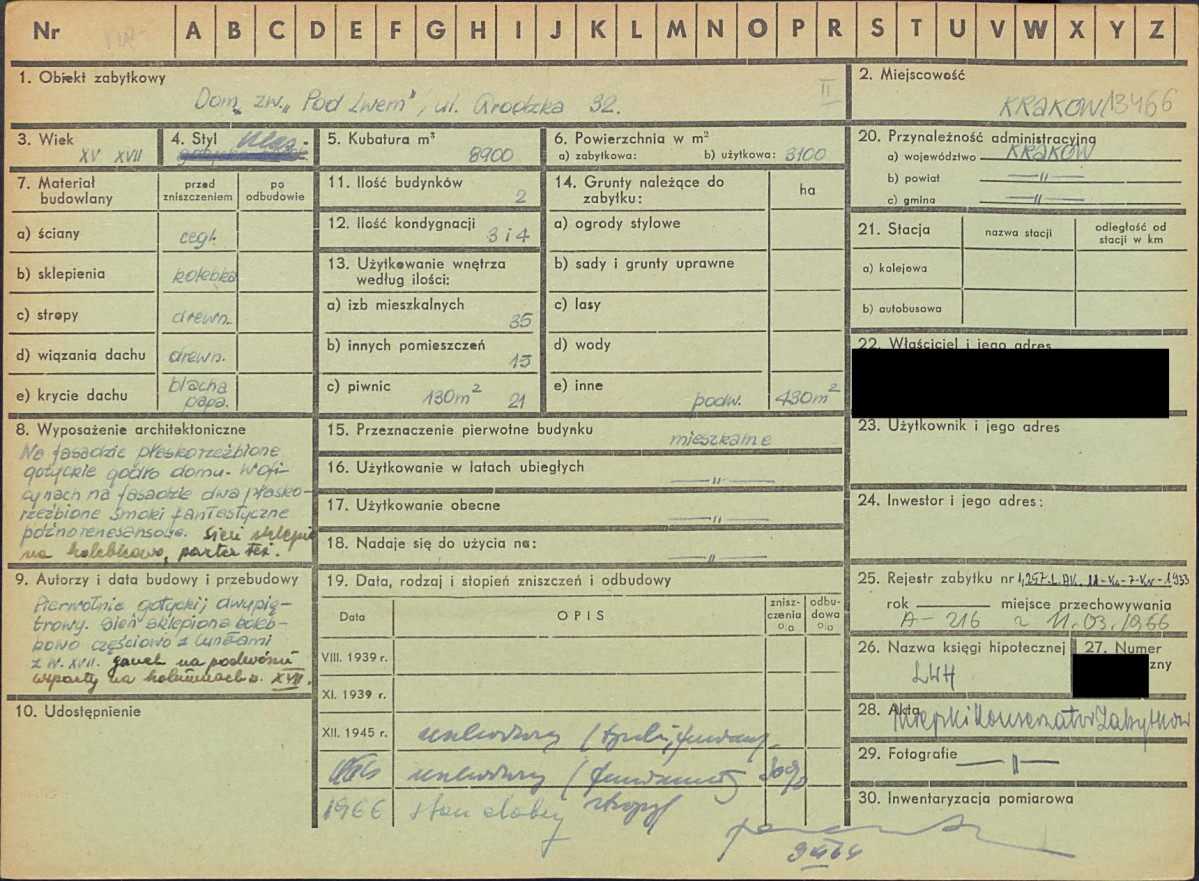 Nr A B C D E F G H I J K L M N O P R S T U V W X Y Z
1. Obiekt zabytkowy
Dom zw. „Pod Lwem", ul. Grodzka 32.
II
2. Miejscowość
KRAKÓW 13466
3. Wiek
XV XVII
4. Styl
5. Kubatura m³
8900
6. Powierzchnia w m²
a) zabytkowa: b) użytkowa: 3100
20. Przynależność administracyjna
a) województwo KRAKÓW
b) powiat —"—
c) gmina —"—
7. Materiał budowlany
przed zniszczeniem
po odbudowie
a) ściany cegł.
b) sklepienia kolebka
c) stropy drewn.
d) wiązania dachu drewn.
e) krycie dachu blacha
papa.
11. Ilość budynków
2
12. Ilość kondygnacji
3 i 4
13. Użytkowanie wnętrza
według ilości:
a) izb mieszkalnych
35
b) innych pomieszczeń
15
c) piwnic 130m² 21
14. Grunty należące do
zabytku:
ha
a) ogrody stylowe
b) sady i grunty uprawne
c) lasy
d) wody
e) inne podw. 430m²
21. Stacja
nazwa stacji
odległość od
stacji w km
a) kolejowa
b) autobusowa
22. Właściciel i jego adres
23. Użytkownik i jego adres
24. Inwestor i jego adres:
8. Wyposażenie architektoniczne
Na fasadzie płaskorzeźbione
gotyckie godło domu. W ofi-
cynach na fasadzie dwa płasko-
rzeźbione smoki fantastyczne
późnorenesansowe. Sień sklepio
na kolebkowo, parter też.
15. Przeznaczenie pierwotne budynku
mieszkalne
16. Użytkowanie w latach ubiegłych
—"—
17. Użytkowanie obecne
—"—
18. Nadaje się do użycia na:
—"—
9. Autorzy i data budowy i przebudowy
Pierwotnie gotycki, dwupię-
trowy. Sień sklepiona koleb-
kowo częściowo z lunetami
z w. XVII. ganek na podwórzu
wsparty na kolumnach w. XVII.
10. Udostępnienie
19. Data, rodzaj i stopień zniszczeń i odbudowy
Data
OPIS
znisz-
czenia
%
odbu-
dowa
%
VIII. 1939 r.
XI. 1939 r.
XII. 1945 r. uszkodzony
uszkodzony (fundamenty 30%
1966 stan dobry
25. Rejestr zabytku nr
rok miejsce przechowywania
A-216 z 11.03.1966
26. Nazwa księgi hipotecznej
LWH
27. Numer
zny
28. Akta
Miejski Konserwator Zabytków
29. Fotografie —"—
30. Inwentaryzacja pomiarowa